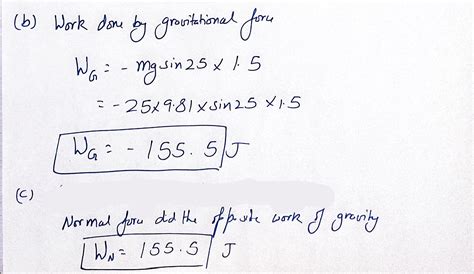 (b) Work done by gravitational force
W_G = - mg sin 25 × 1.5
= - 25 × 9.81 × sin 25 × 1.5
W_G = - 155.5 J
(c)
Normal force did the opposite work of gravity
W_N = 155.5 J